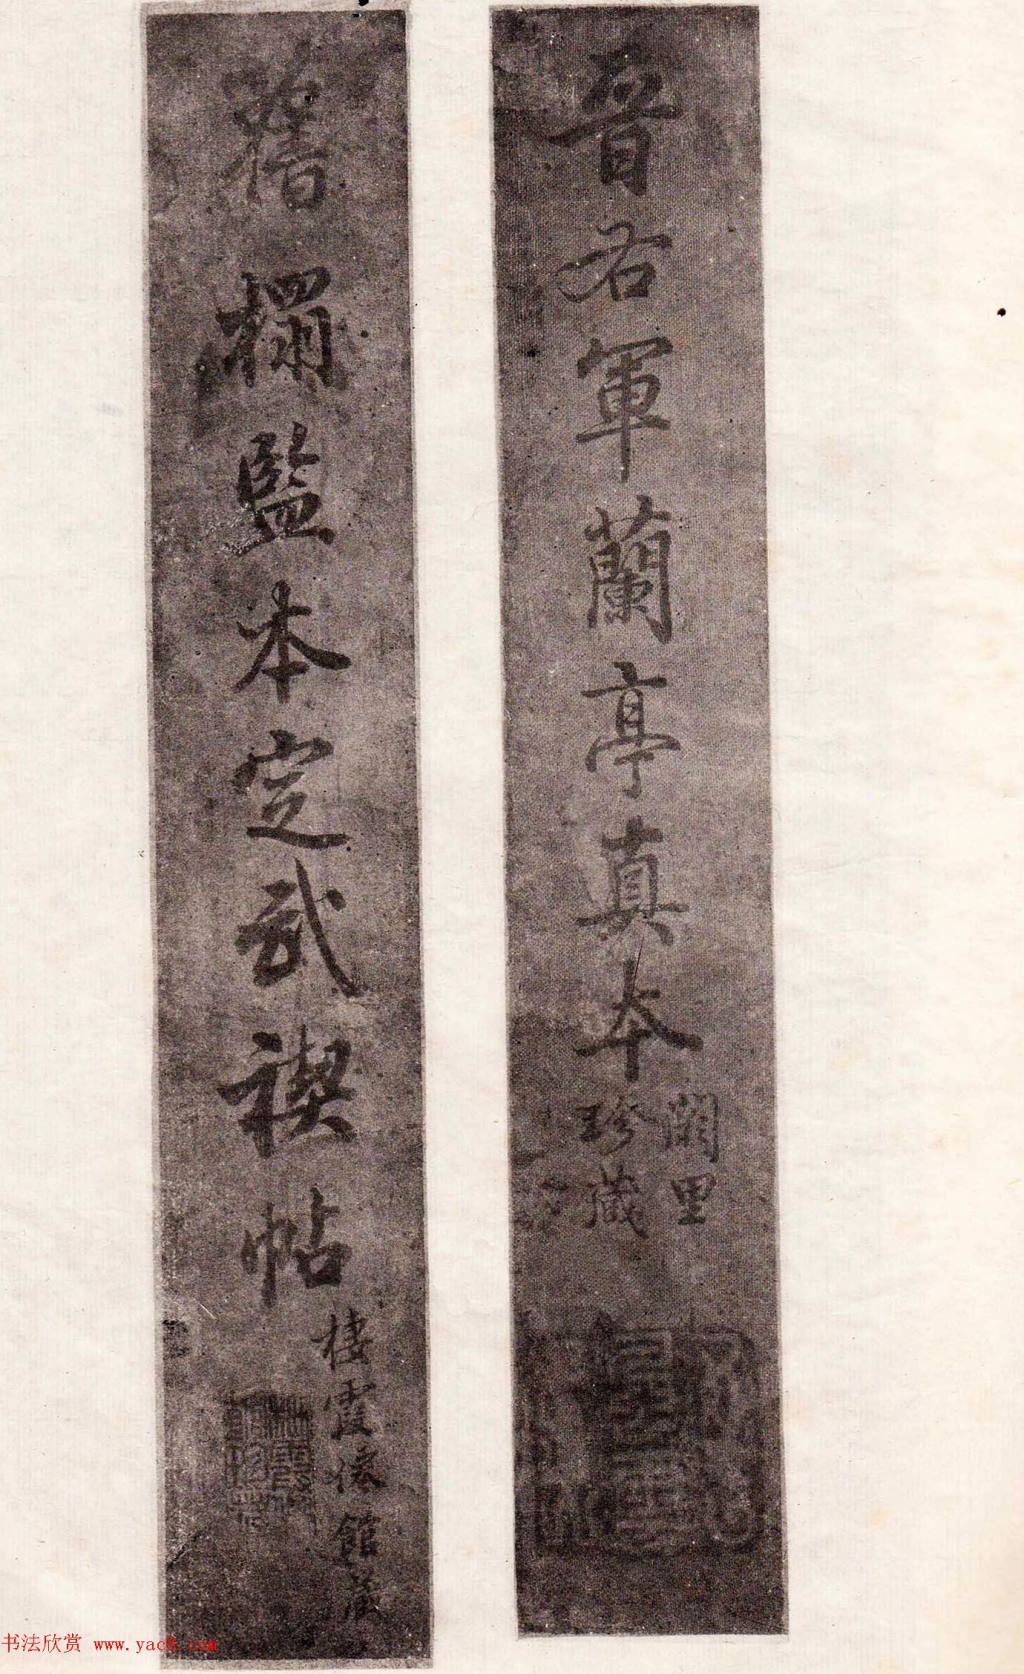 晉右軍蘭亭真本
闕里
珍藏
舊榻監本定武禊帖
棲霞僊館藏
书法欣赏 www.yac8.com